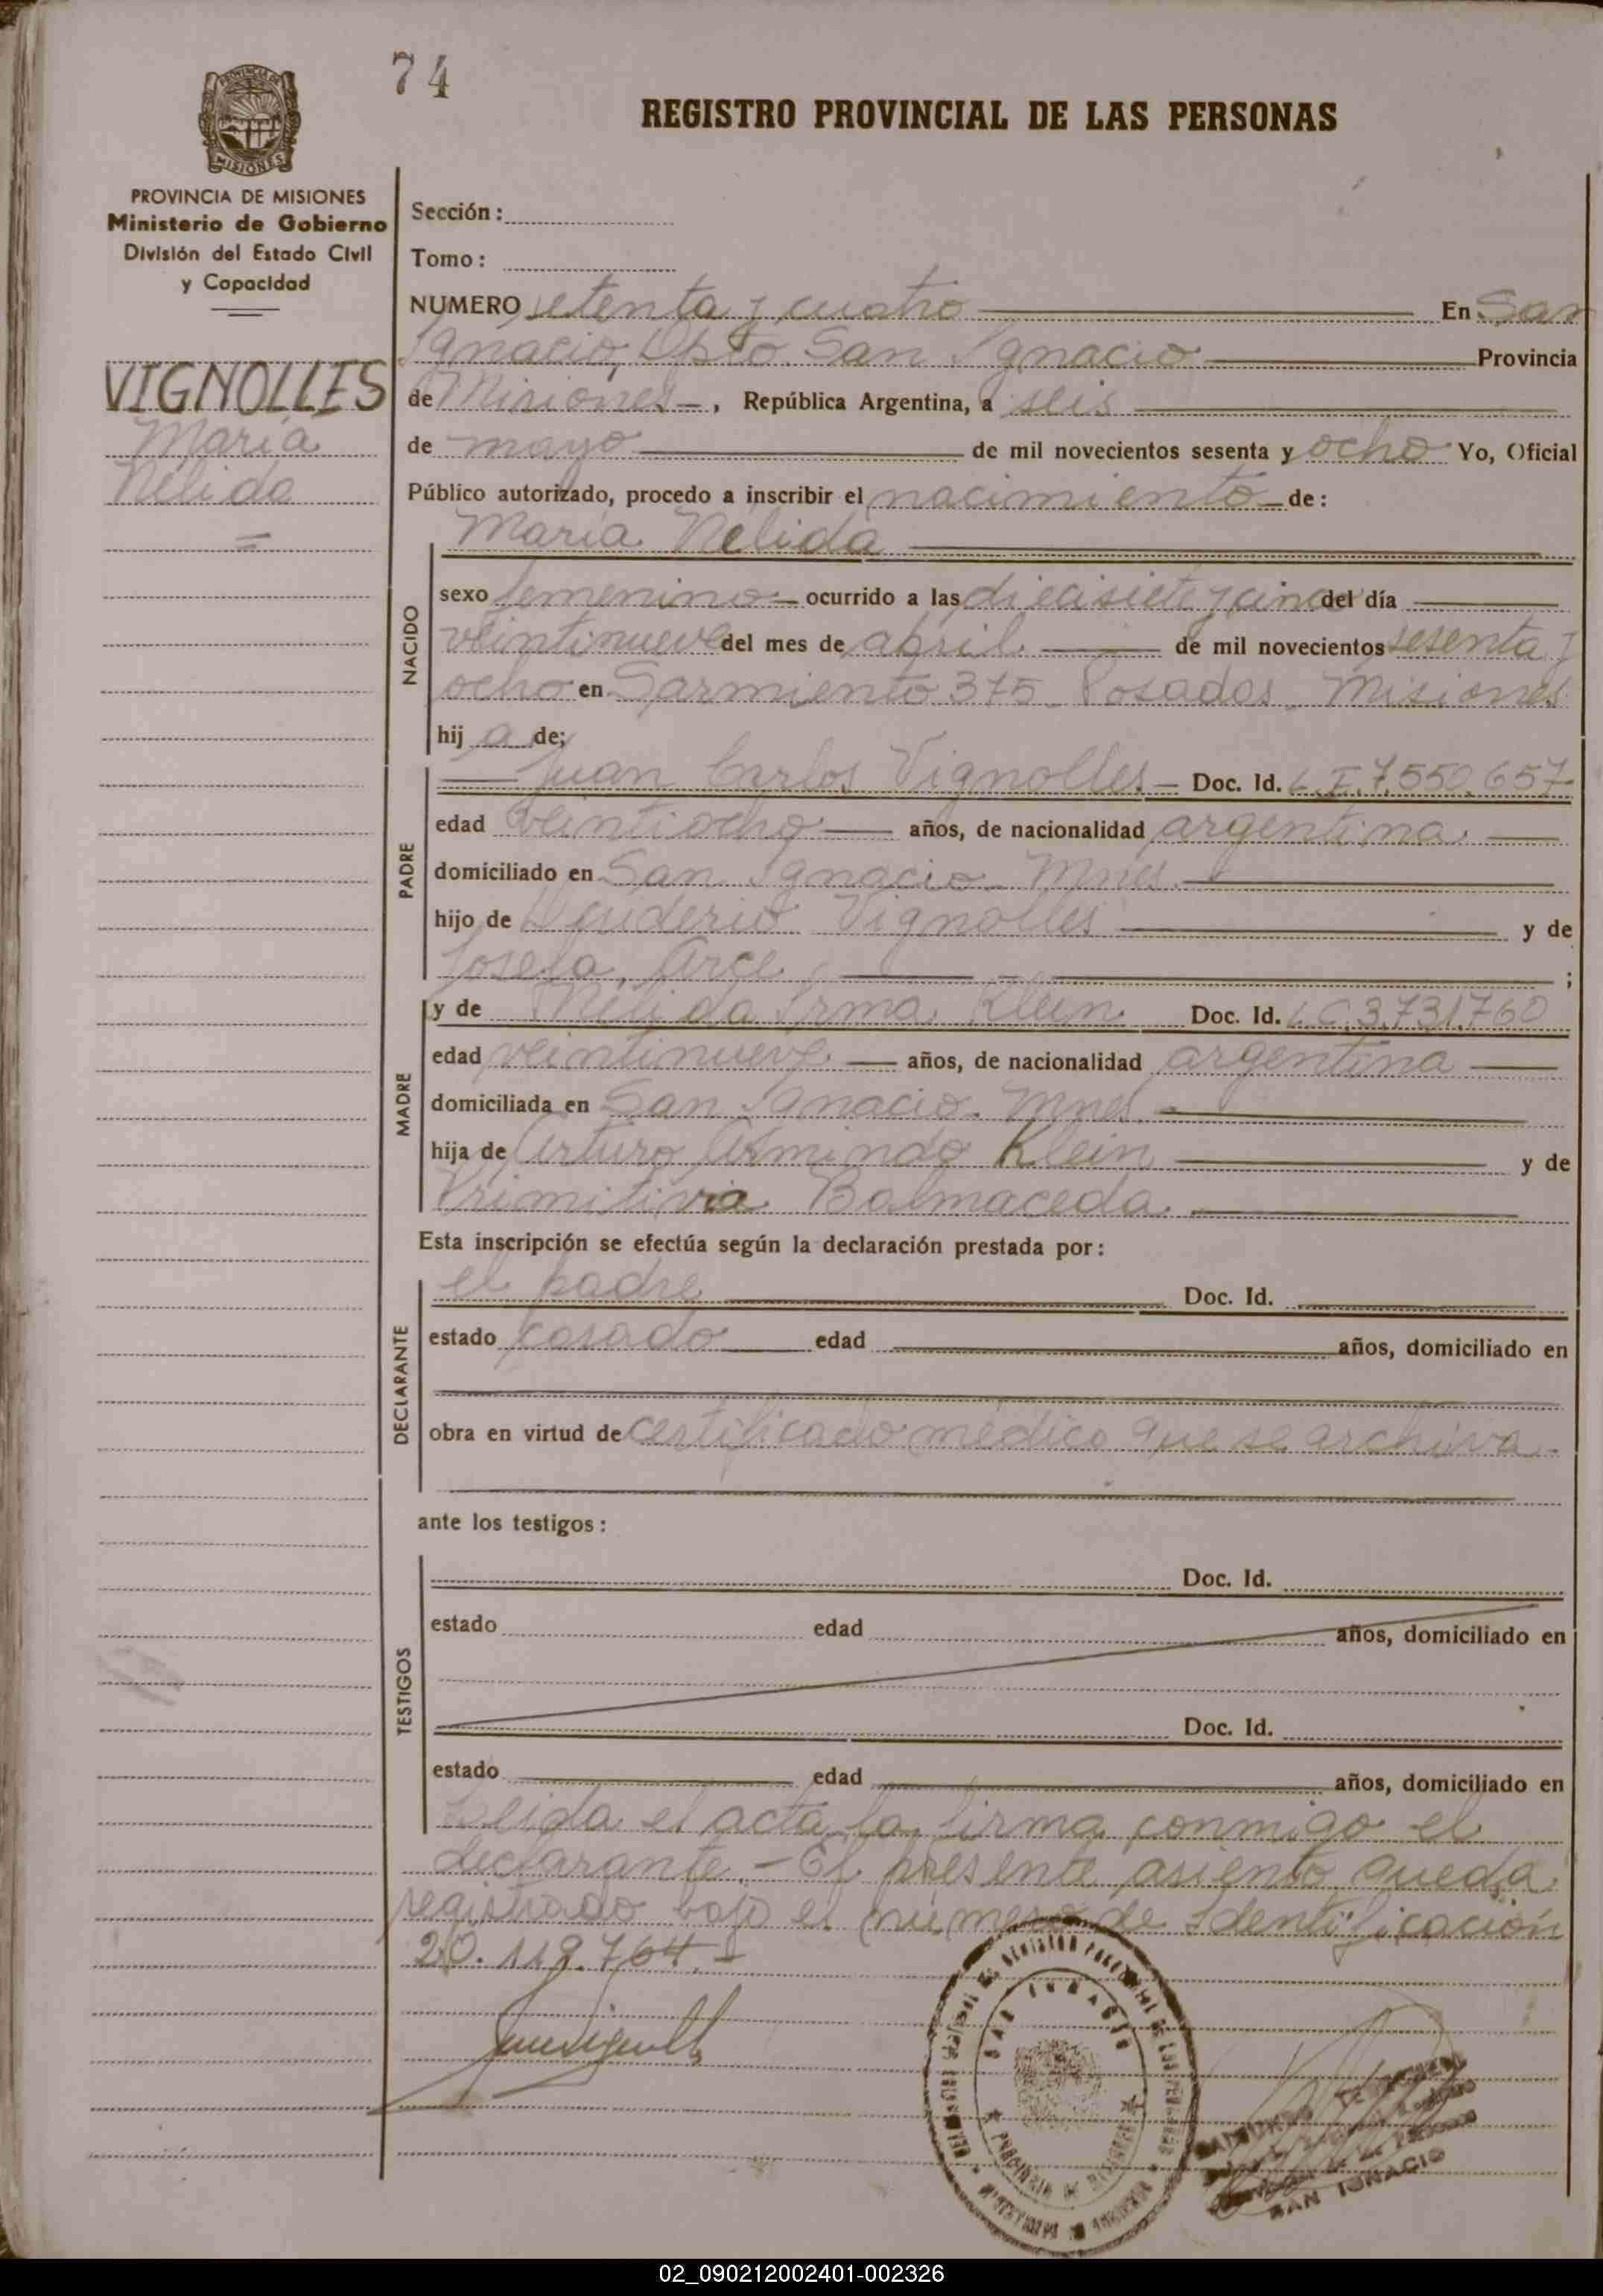 74
REGISTRO PROVINCIAL DE LAS PERSONAS
PROVINCIA DE MISIONES
PROVINCIA DE MISIONES
Ministerio de Gobierno
División del Estado Civil
y Capacidad
VIGNOLLES
María
Nélida
Sección:
Tomo:
NUMERO setenta y cuatro En San
Ignacio, Dpto. San Ignacio Provincia
de Misiones, República Argentina, a seis
de mayo de mil novecientos sesenta y ocho Yo, Oficial
Público autorizado, procedo a inscribir el nacimiento de:
María Nélida
NACIDO
sexo femenino ocurrido a las diecisiete y cinco del día
veintinueve del mes de abril de mil novecientos sesenta y
ocho en Sarmiento 375 - Posadas - Misiones
hij a de;
PADRE
Juan Carlos Vignolles - Doc. Id. L.E. 7.550.657
edad veintiocho años, de nacionalidad argentina
domiciliado en San Ignacio - Mnes.
hijo de Desiderio Vignolles y de
Josefa Arce ;
MADRE
y de Nélida Irma Klein Doc. Id. L.C. 3.731.760
edad veintinueve años, de nacionalidad argentina
domiciliada en San Ignacio - Mnes.
hija de Arturo Armindo Klein y de
Primitiva Balmaceda
Esta inscripción se efectúa según la declaración prestada por:
DECLARANTE
el padre Doc. Id.
estado casado edad años, domiciliado en
obra en virtud de certificado médico que se archiva.
ante los testigos:
TESTIGOS
Doc. Id.
estado edad años, domiciliado en
Doc. Id.
estado edad años, domiciliado en
Leida el acta la firma conmigo el
declarante.- El presente asiento queda
registrado bajo el número de Identificación
20.119.764.-
SAN IGNACIO
PROVINCIA DE MISIONES
SAN IGNACIO
02_090212002401-002326